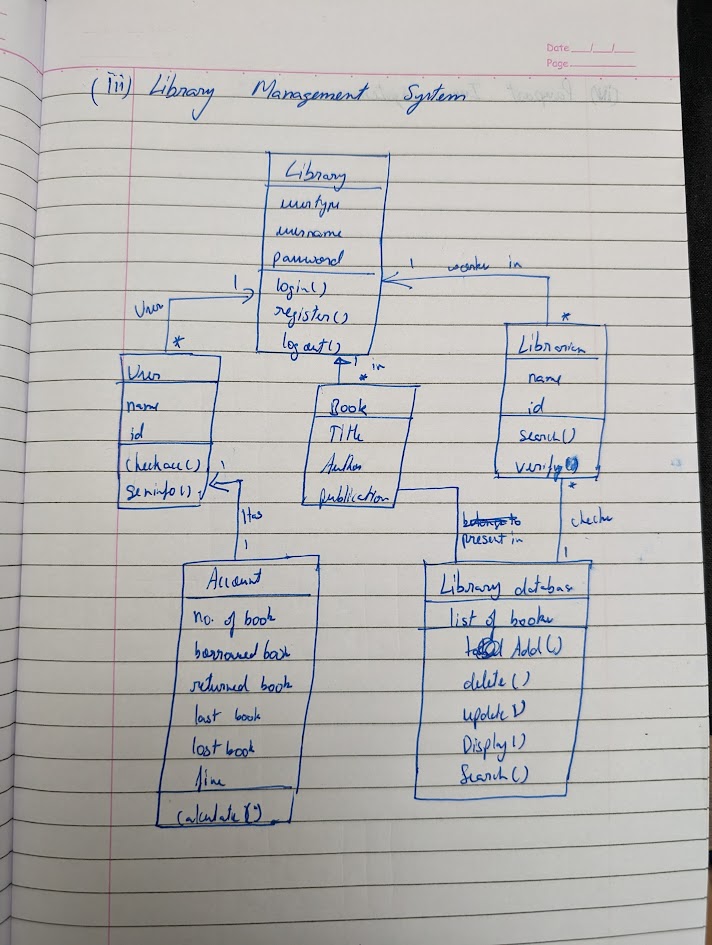 Date __/__/__
Page ______
(iii) Library Management System
Library
usertype
username
password
login()
register()
logout()
1
User
*
1
works in
*
1 in
*
User
name
id
Checkacc()
geninfo()
1
Has
1
Book
Title
Author
publication
Librarian
name
id
Search()
verify()
*
checks
1
belongs to
present in
Account
no. of book
borrowed book
returned book
last book
lost book
fine
Calculate()
Library database
list of books
Add()
delete()
update()
Display()
Search()